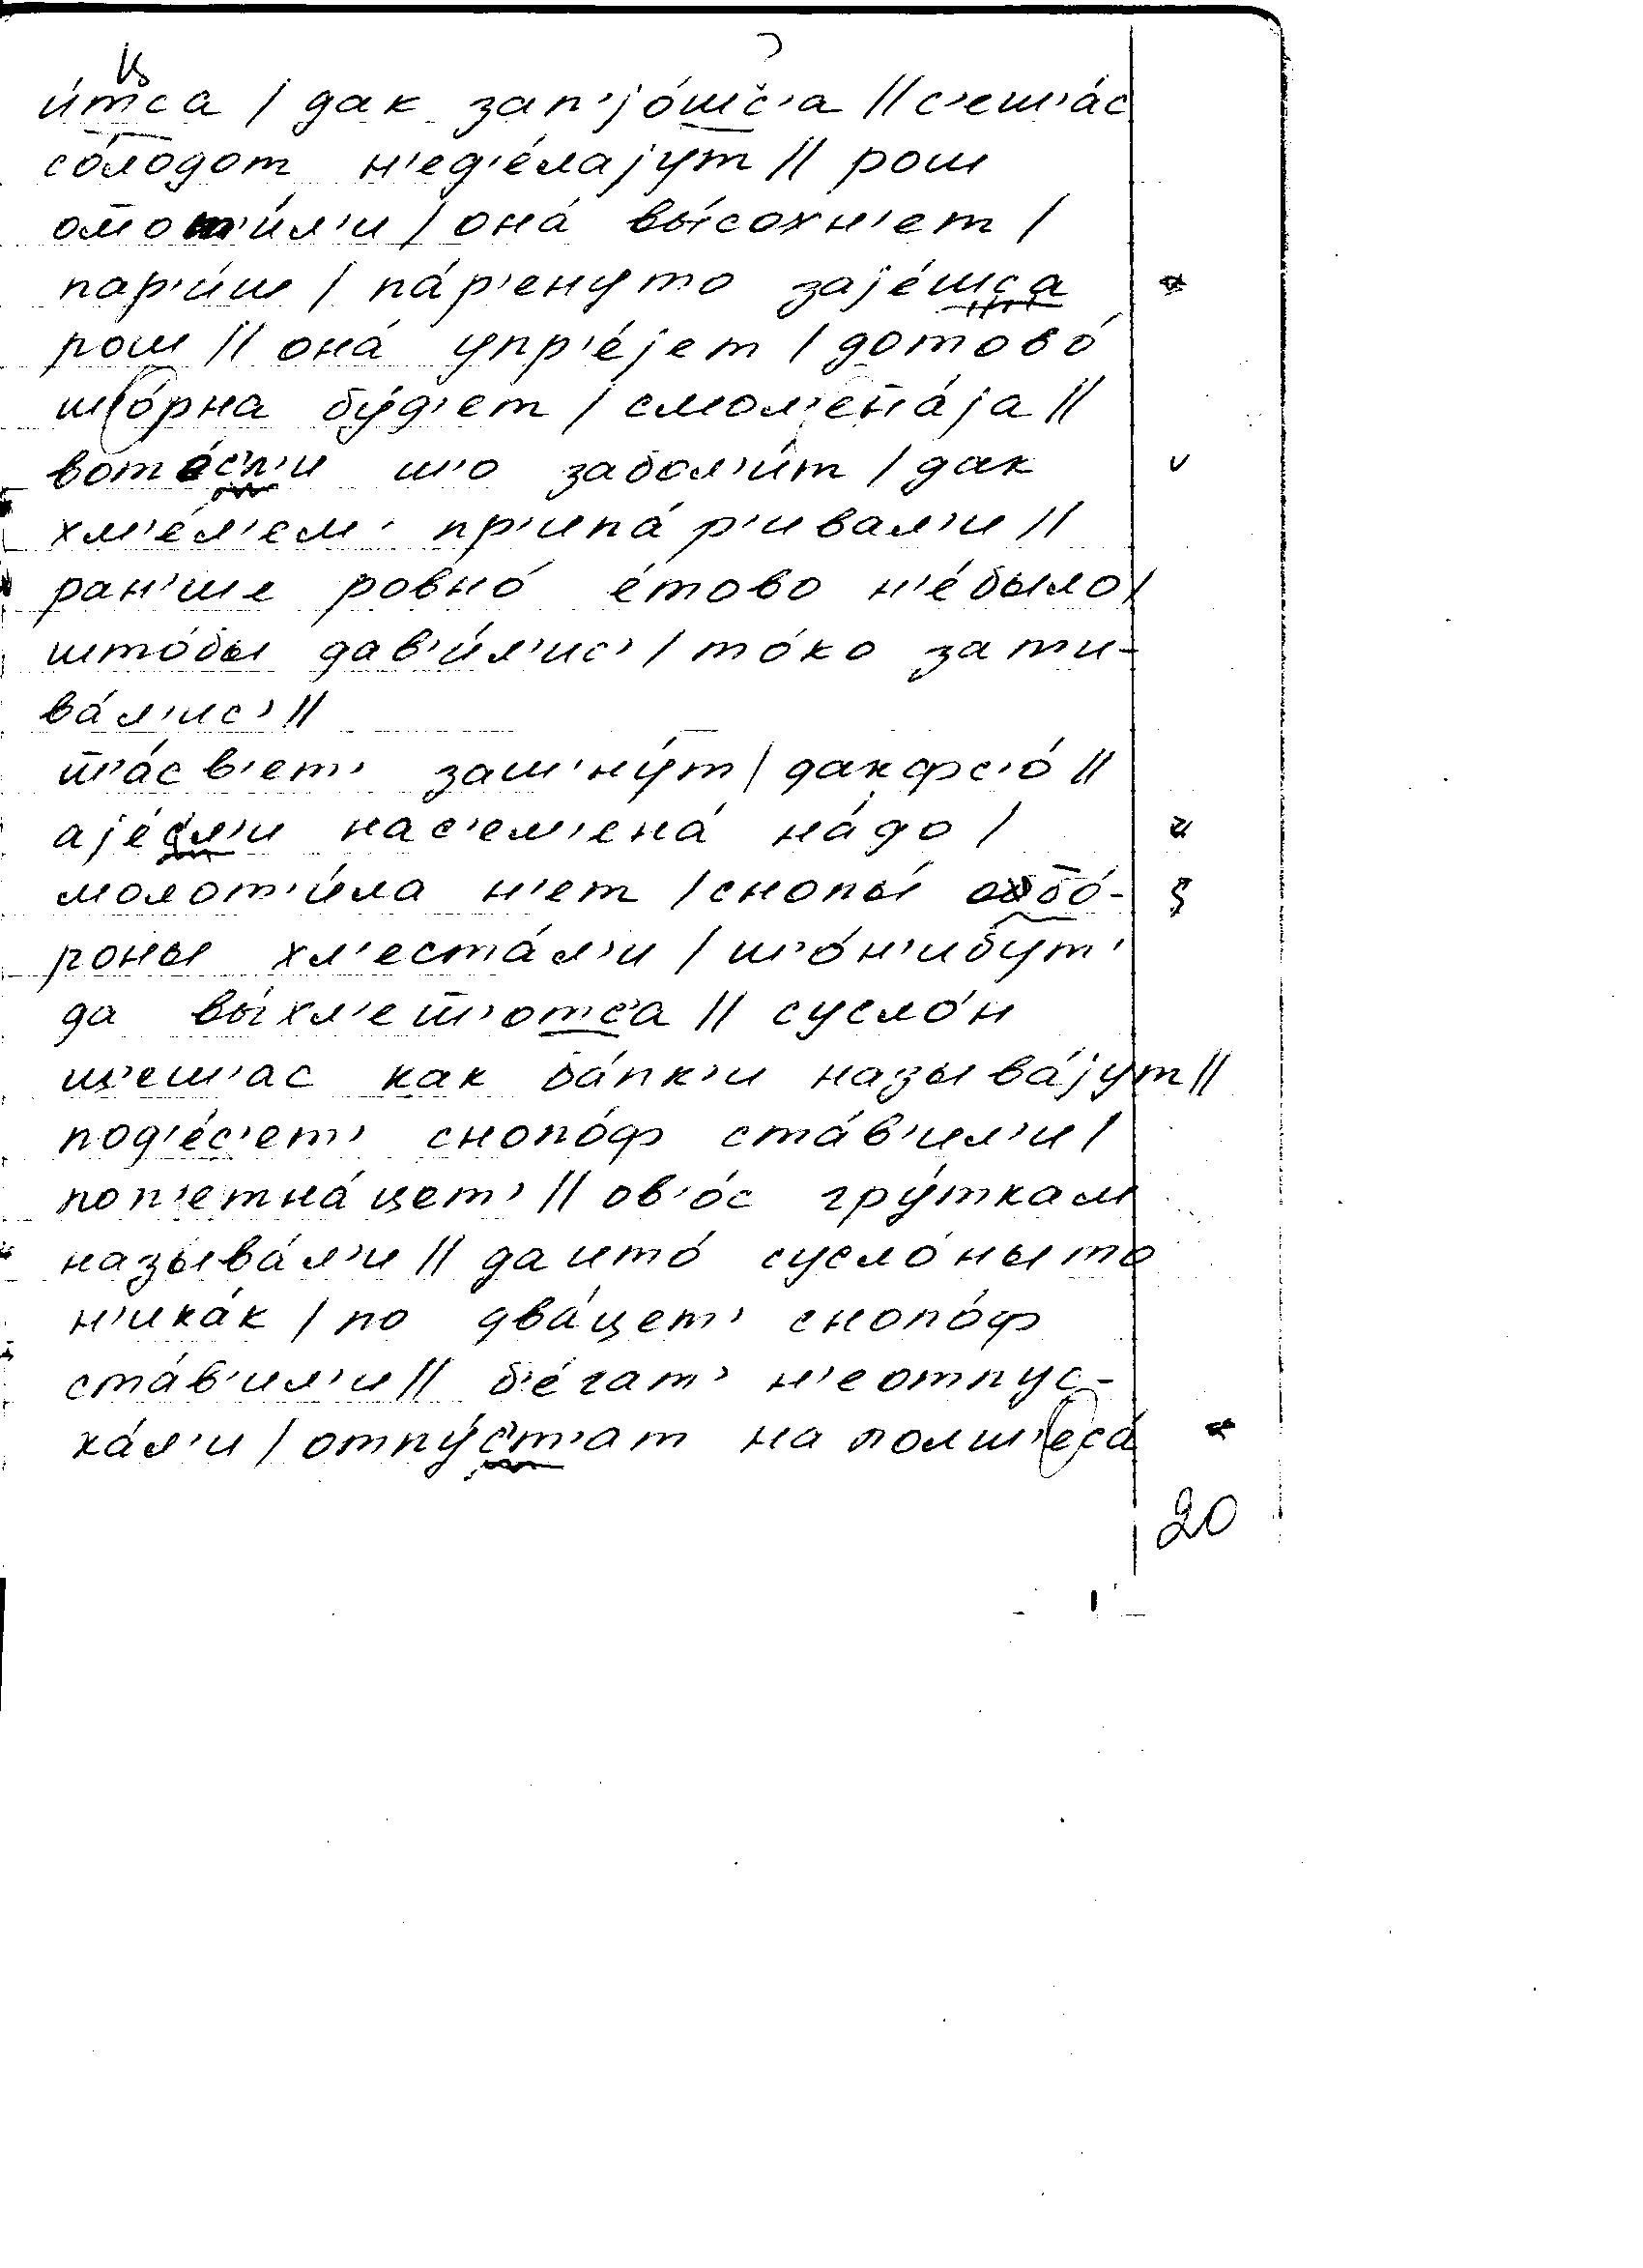 и́тса / дак зап'jо́шс'а // с'еш'а́с
со́лодот н'ед'е́лаjут // рош
омот'и́л'и / она́ вы́сохн'ет /
пар'и́ш / па́р'енуто заjе́шса
рош // она́ упр'е́jет / дотово́
ш'о́рна бу́д'ет / смол'ена́jа //
воте́с'л'и ш'о забол'и́т / дак
хм'е́л'ем' пр'ипа́р'ивал'и //
ран'ше ровно́ е́тово н'е́было /
што́бы дав'и́л'ис' / то́ко зати-
ва́л'ис' //
т'а́св'ет' заш'ну́т / дакфс'о́ //
аjе́сл'и нас'ем'ена́ на́до /
молот'и́ла н'ет / снопы́ обо́-
роны хл'еста́л'и / ш'о́н'ибут'
да вы́хл'ет'отса // сусло́н
ш'еш'ас как ба́пк'и называ́jут //
под'е́с'ет' снопо́ф ста́в'ил'и /
поп'етна́цет' // ов'о́с гру́ткам
называ́л'и // даито́ сусло́ныто
н'ика́к / по два́цет' снопо́ф
ста́в'ил'и // б'е́гат' н'еотпус-
ка́л'и / отпу́ст'ат на полш'еса́
20